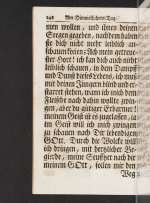 248 Am Himmelfahrts-Tag.
nen wollen, und ihren deinen
Seegen gegeben, nachdem haben
sie dich nicht mehr leiblich an-
schauen können: Ach mein getreu-
ster Hort! ich kan dich auch nicht
leiblich schauen, in den Dampf
und Dunst dieses Lebens, ich muß
mit deinen Jüngern blind und er-
starret stehen, wann ich mein
Fleische nach dahin wollte zwin-
gen, aber du gütiger Erbarmer!
meinem Geist ist es zugelassen, ja
im Geist will ich mich zwingen
zu schauen nach Dir lebendigen
GOtt. Durch die Wolcke will
ich dringen, mit hertzlicher Be-
gierde, meine Seufftzer nach dir
meinem GOtt, sollen mir den
Weg